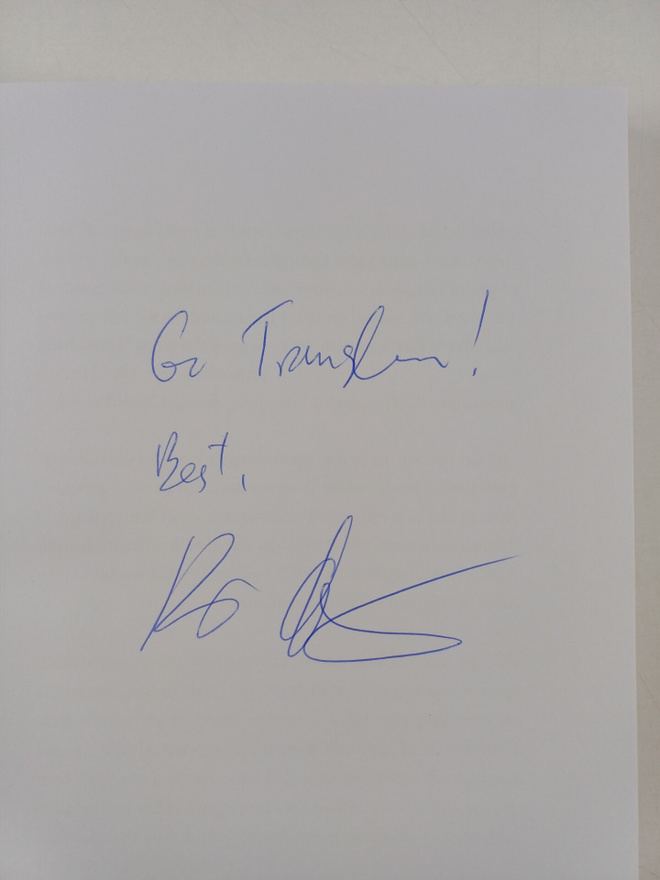 Go Transform!
Best,